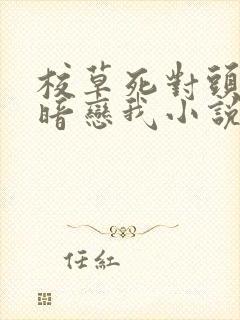 校草死對頭
暗戀我小說
任紅